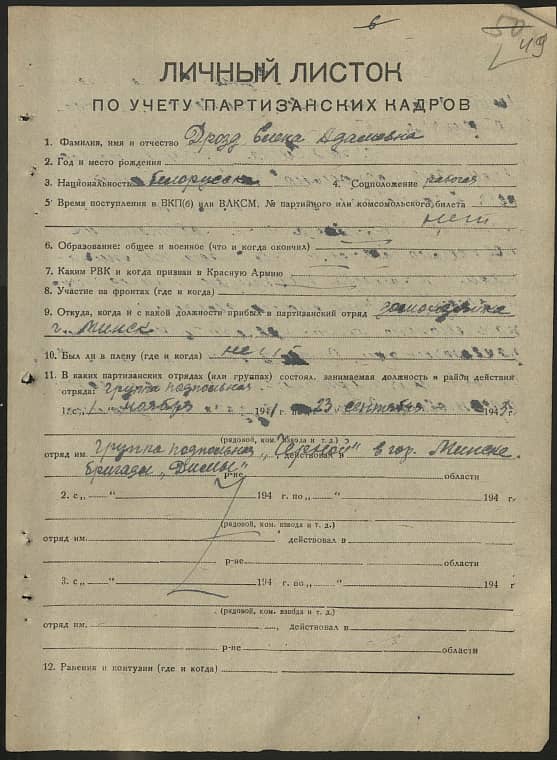 6
50
49
ЛИЧНЫЙ ЛИСТОК
ПО УЧЕТУ ПАРТИЗАНСКИХ КАДРОВ
1. Фамилия, имя и отчество Дрозд Елена Адамовна
2. Год и место рождения
3. Национальность белорусска 4. Соцположение рабочая
5 Время поступления в ВКП(б) или ВЛКСМ, № партийного или комсомольского билета
нет
6. Образование: общее и военное (что и когда окончил)
7. Каким РВК и когда призван в Красную Армию
8. Участие на фронтах (где и когда)
9. Откуда, когда и с какой должности прибыл в партизанский отряд домохозяйка
г. Минск
10. Был ли в плену (где и когда) нет
11. В каких партизанских отрядах (или группах) состоял, занимаемая должность и район действия
отряда: группа подпольная
1. с „1" ноября 1941 г. по „23 сентября 1943 г.
(рядовой, ком. взвода и т. д.)
отряд им. Группа подпольная действовал в в гор. Минске
бригады „Димы" р-не области
2. с „ " 194 г. по „ " 194 г.
(рядовой, ком. взвода и т. д.)
отряд им. действовал в
р-не области
3. с „ " 194 г. по „ " 194 г
(рядовой, ком. взвода и т. д.)
отряд им. действовал в
р-не области
12. Ранения и контузии (где и когда)